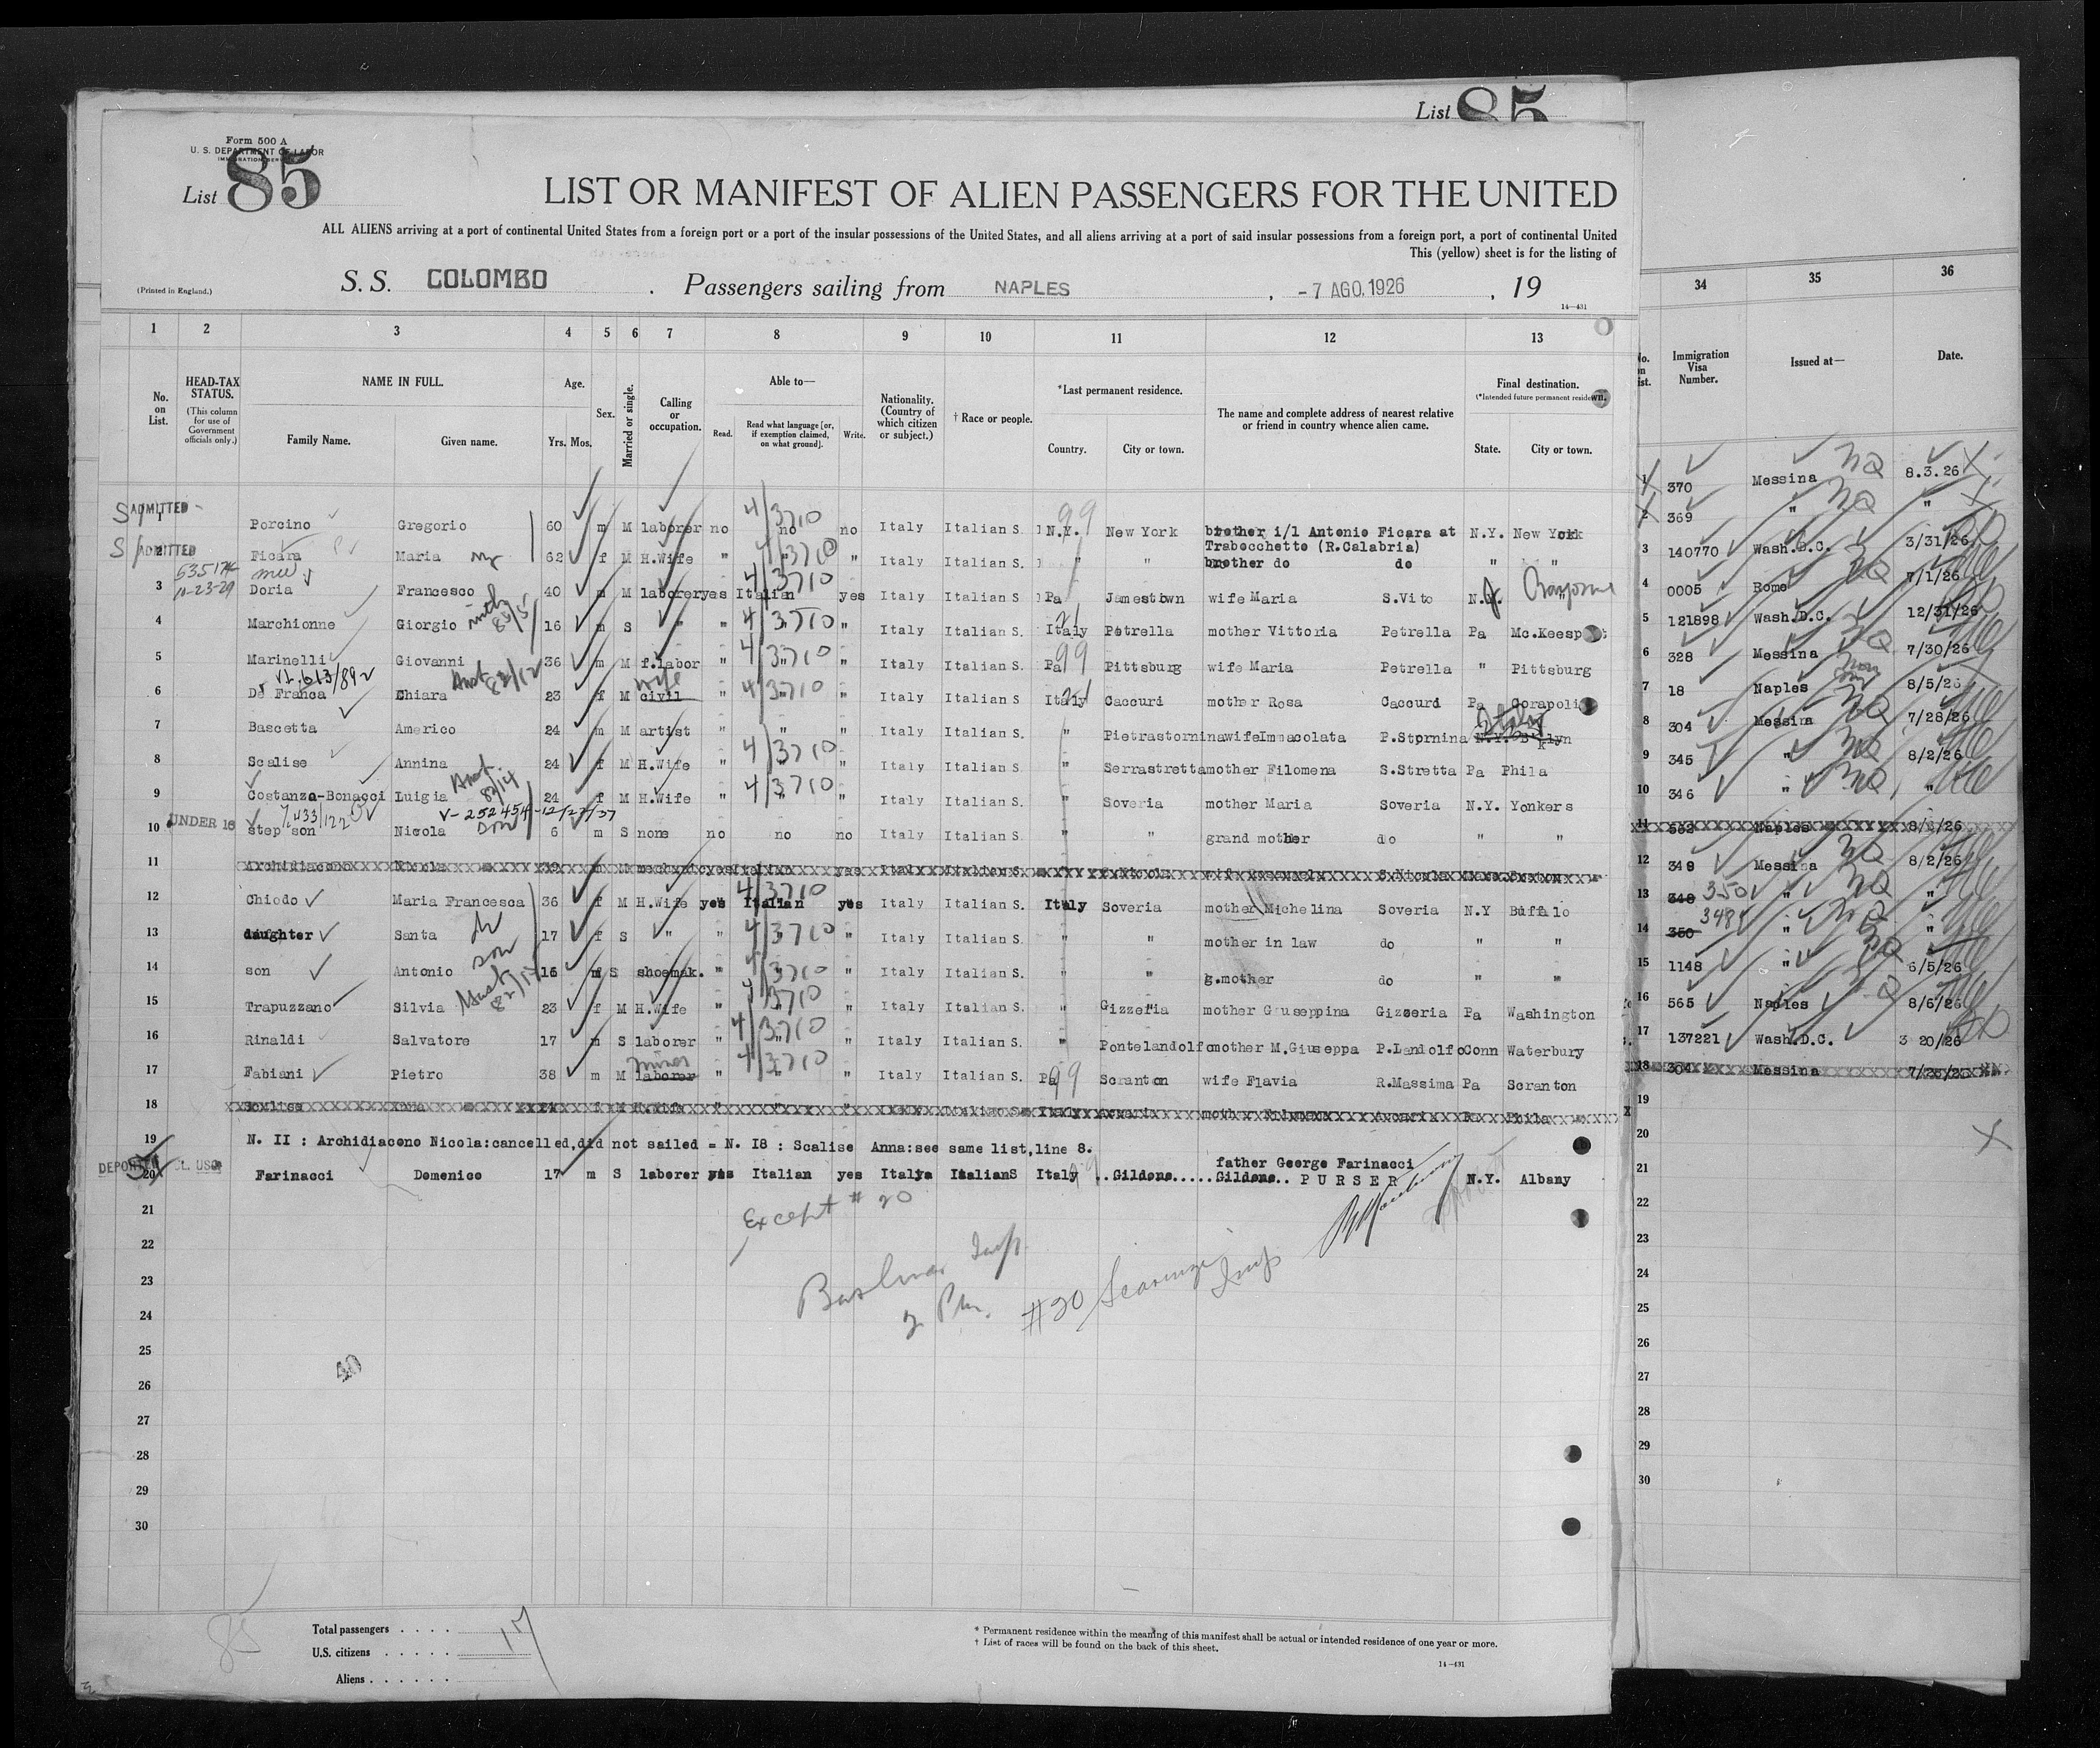 List 85
Form 500 A
U. S. DEPARTMENT OF LABOR
IMMIGRATION SERVICE
List 85
LIST OR MANIFEST OF ALIEN PASSENGERS FOR THE UNITED
ALL ALIENS arriving at a port of continental United States from a foreign port or a port of the insular possessions of the United States, and all aliens arriving at a port of said insular possessions from a foreign port, a port of continental United
This (yellow) sheet is for the listing of
(Printed in England.) S. S. COLOMBO . Passengers sailing from NAPLES , -7 AGO. 1926 , 19
14-431
1 2 3 4 5 6 7 8 9 10 11 12 13 34 35 36
No. on List.
HEAD-TAX STATUS. (This column for use of Government officials only.)
NAME IN FULL.
Family Name. Given name.
Age. Yrs. Mos.
Sex.
Married or single.
Calling or occupation.
Able to—
Read. Read what language [or, if exemption claimed, on what ground]. Write.
Nationality. (Country of which citizen or subject.)
† Race or people.
*Last permanent residence.
Country. City or town.
The name and complete address of nearest relative or friend in country whence alien came.
Final destination.
(*Intended future permanent residence.)
State. City or town.
Immigration Visa Number. Issued at— Date.
ADMITTED 1 Porcino Gregorio 60 m M laborer no no no Italy Italian S. N.Y. New York brother i/l Antonio Ficara at N.Y. New York
Trabocchetto (R.Calabria)
ADMITTED 2 Ficara Maria 62 f M H.Wife " " " Italy Italian S " " brother do do " "
535174
10-23-29
3 Doria Francesco 40 m M laborer yes Italian yes Italy Italian S Pa Jamestown wife Maria S.Vito N.J. Bayonne
4 Marchionne Giorgio 16 m S " " " " Italy Italian S. Italy Petrella mother Vittoria Petrella Pa Mc.Keesp
5 Marinelli Giovanni 36 m M f.labor " " " Italy Italian S. Pa Pittsburg wife Maria Petrella " Pittsburg
6 De Franca Chiara 23 f M civil wife " " " Italy Italian S. Italy Caccuri mother Rosa Caccuri Pa Corapolis
7 Bascetta Americo 24 m M artist " " " Italy Italian S. " Pietrastornina wife Immacolata P.Stornina N.Y. B'klyn Italy
8 Scalise Annina 24 f M H.Wife " " " Italy Italian S. " Serrastretta mother Filomena S.Stretta Pa Phila
9 Costanzo-Bonacci Luigia 24 f M H.Wife " " " Italy Italian S. " Soveria mother Maria Soveria N.Y. Yonkers
V-252454-12/27/37
UNDER 16 10 step son Nicola son 6 m S none no no no Italy Italian S. " " grand mother do " "
11 Archidiacono Nicola
12 Chiodo Maria Francesca 36 f M H.Wife yes Italian yes Italy Italian S. Italy Soveria mother Michelina Soveria N.Y Buffalo
13 daughter Santa 17 f S " " " " Italy Italian S. " " mother in law do " "
14 son Antonio son 16 m S shoemak. " " " Italy Italian S. " " g.mother do " "
15 Trapuzzano Silvia 23 f M H.Wife " " " Italy Italian S. " Gizzeria mother Giuseppina Gizzeria Pa Washington
16 Rinaldi Salvatore 17 m S laborer " " " Italy Italian S. " Pontelandolfo mother M.Giuseppa P.Landolfo Conn Waterbury
17 Fabiani Pietro 38 m M laborer miner " " " Italy Italian S. Pa Scranton wife Flavia R.Massima Pa Scranton
18 Scalise Anna
19 N. II : Archidiacono Nicola:cancelled,did not sailed = N. I8 : Scalise Anna:see same list,line 8.
DEPORTED 20 Farinacci Domenico 17 m S laborer yes Italian yes Italy Italian S Italy ..Gildone..... father George Farinacci Gildone.. PURSER N.Y. Albany
Except # 20
#20
21
22
23
24
25
26
27
28
29
30
1 370 Messina 8.3.26
2 369 " "
3 140770 Wash.D.C. 3/31/26
4 0005 Rome 7/1/26
5 121898 Wash.D.C. 12/31/26
6 328 Messina 7/30/26
7 18 Naples 8/5/26
8 304 Messina 7/28/26
9 345 " 8/2/26
10 346 " "
11 562 Naples 8/6/26
12 349 Messina 8/2/26
13 348 350 " "
14 350 348 " "
15 1148 " 6/5/26
16 565 Naples 8/6/26
17 137221 Wash.D.C. 3 20/26
18 304 Messina 7/28/26
19
20
21
22
23
24
25
26
27
28
29
30
85
Total passengers . . . . 17
U.S. citizens . . . . .
Aliens . . . . . .
* Permanent residence within the meaning of this manifest shall be actual or intended residence of one year or more.
† List of races will be found on the back of this sheet.
14-431